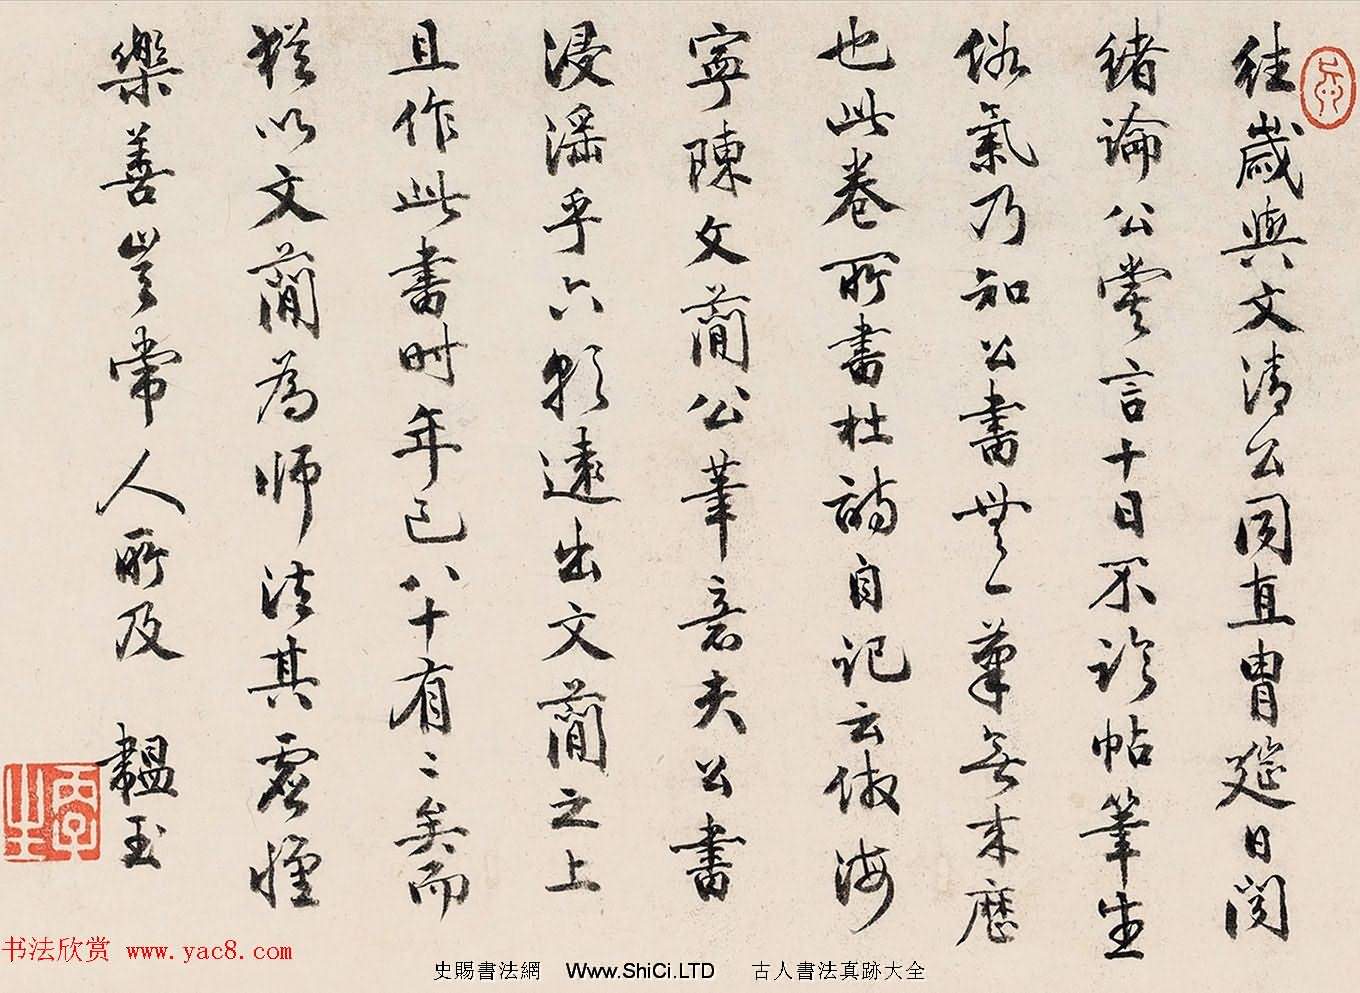 往歲與文清公同直胄筵日聞
緒論公嘗言十日不臨帖筆生
俗氣乃知公書無一筆無來歷
也此卷所書杜詩自記云倣海
寧陳文簡公筆意夫公書
浸淫乎六朝遠出文簡之上
且作此書時年已八十有二矣而
猶以文簡為師法其虛懷
樂善豈常人所及 韞玉
书法欣赏 www.yac8.com
史賜書法網 Www.ShiCi.LTD 古人書法真跡大全